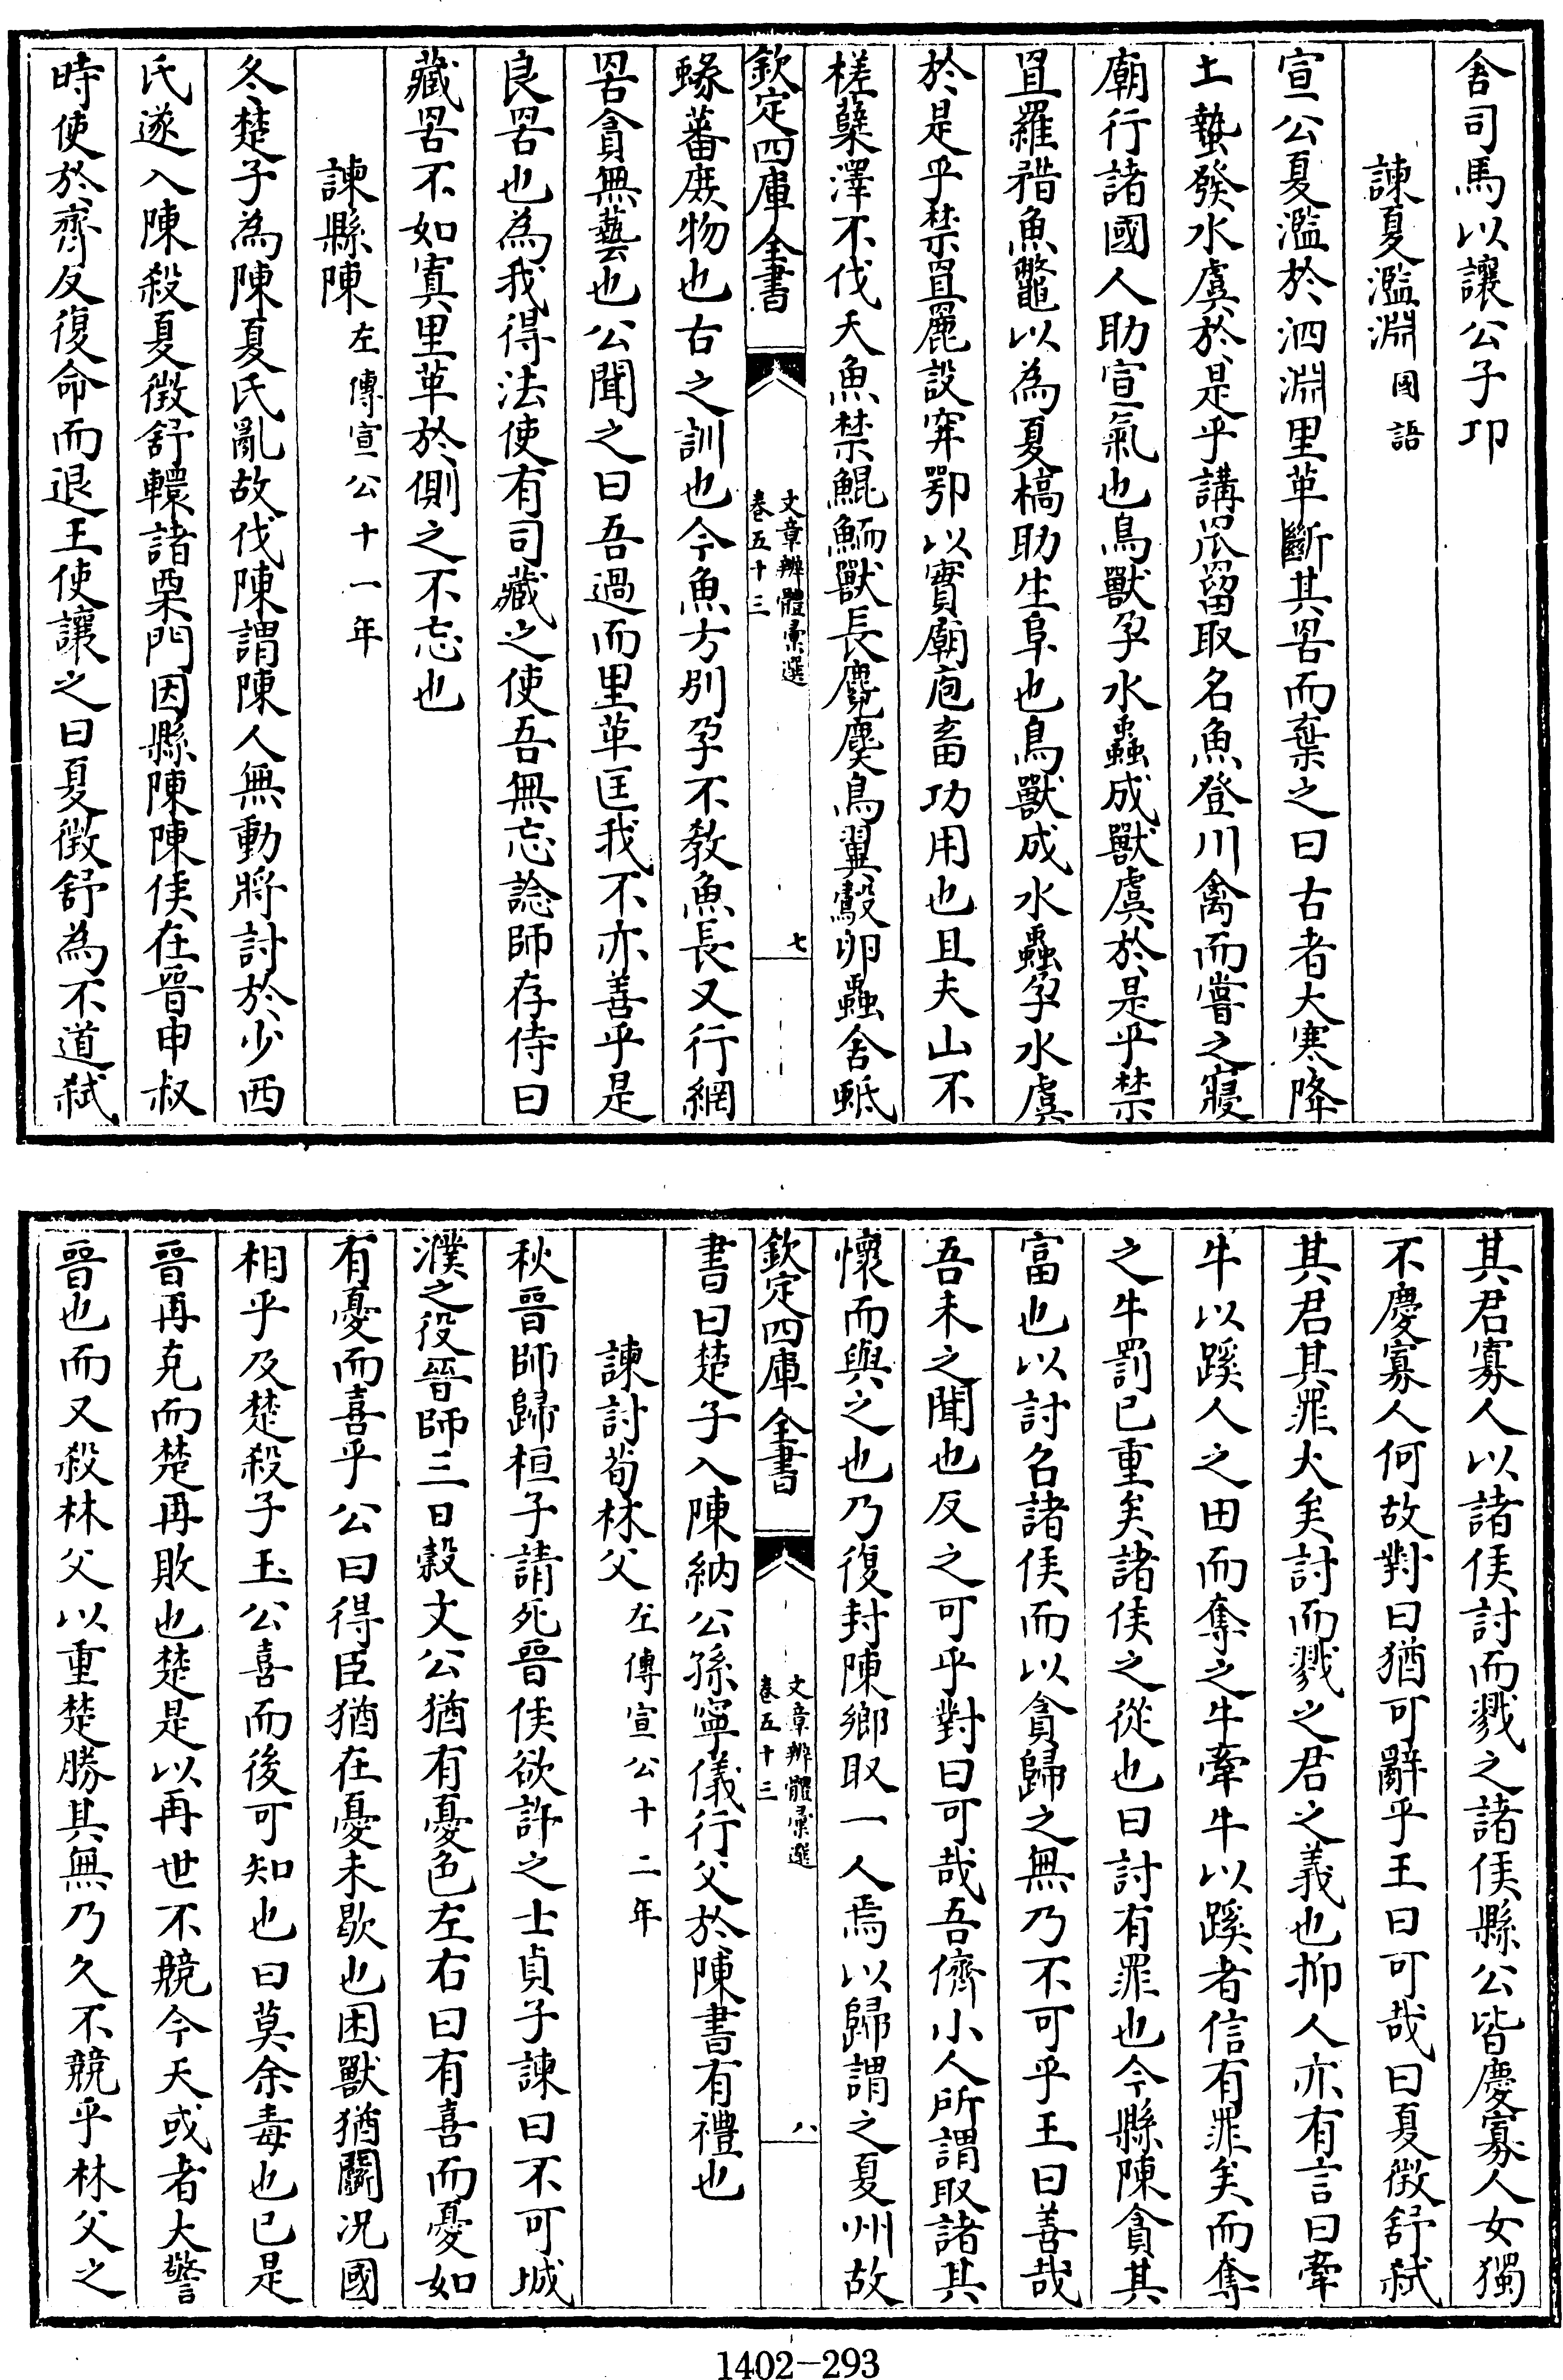 舍司馬以讓公子卬
諫夏濫淵國語
宣公夏濫於泗淵里革斷其罟而棄之曰古者大寒降
土蟄發水虞於是乎講罛罶取名魚登川禽而嘗之寢
廟行諸國人助宣氣也鳥獸孕水蟲成獸虞於是乎禁
罝羅矠魚鼈以為夏槁助生阜也鳥獸成水蟲孕水虞
於是乎禁罝麗設穽鄂以實廟庖畜功用也且夫山不
槎蘖澤不伐夭魚禁鯤鮞獸長麑麌鳥翼鷇卵蟲舍蚳
欽定四庫全書
文章辨體彙選
卷五十三
七
蝝蕃庶物也古之訓也今魚方別孕不教魚長又行網
罟貪無藝也公聞之曰吾過而里革匡我不亦善乎是
良罟也為我得法使有司藏之使吾無忘諗師存侍曰
藏罟不如寘里革於側之不忘也
諫縣陳左傳宣公十一年
冬楚子為陳夏氏亂故伐陳謂陳人無動將討於少西
氏遂入陳殺夏徵舒轘諸栗門因縣陳陳侯在晉申叔
時使於齊反復命而退王使讓之曰夏徵舒為不道弒
其君寡人以諸侯討而戮之諸侯縣公皆慶寡人女獨
不慶寡人何故對曰猶可辭乎王曰可哉曰夏徵舒弒
其君其罪大矣討而戮之君之義也抑人亦有言曰牽
牛以蹊人之田而奪之牛牽牛以蹊者信有罪矣而奪
之牛罰已重矣諸侯之從也曰討有罪也今縣陳貪其
富也以討名諸侯而以貪歸之無乃不可乎王曰善哉
吾未之聞也反之可乎對曰可哉吾儕小人所謂取諸其
懷而與之也乃復封陳鄉取一人焉以歸謂之夏州故
欽定四庫全書
文章辨體彙選
卷五十三
八
書曰楚子入陳納公孫寧儀行父於陳書有禮也
諫討荀林父左傳宣公十二年
秋晉師歸桓子請死晉侯欲許之士貞子諫曰不可城
濮之役晉師三日穀文公猶有憂色左右曰有喜而憂如
有憂而喜乎公曰得臣猶在憂未歇也困獸猶鬭况國
相乎及楚殺子玉公喜而後可知也曰莫余毒也已是
晉再克而楚再敗也楚是以再世不競今天或者大警
晉也而又殺林父以重楚勝其無乃久不競乎林父之
1402-293